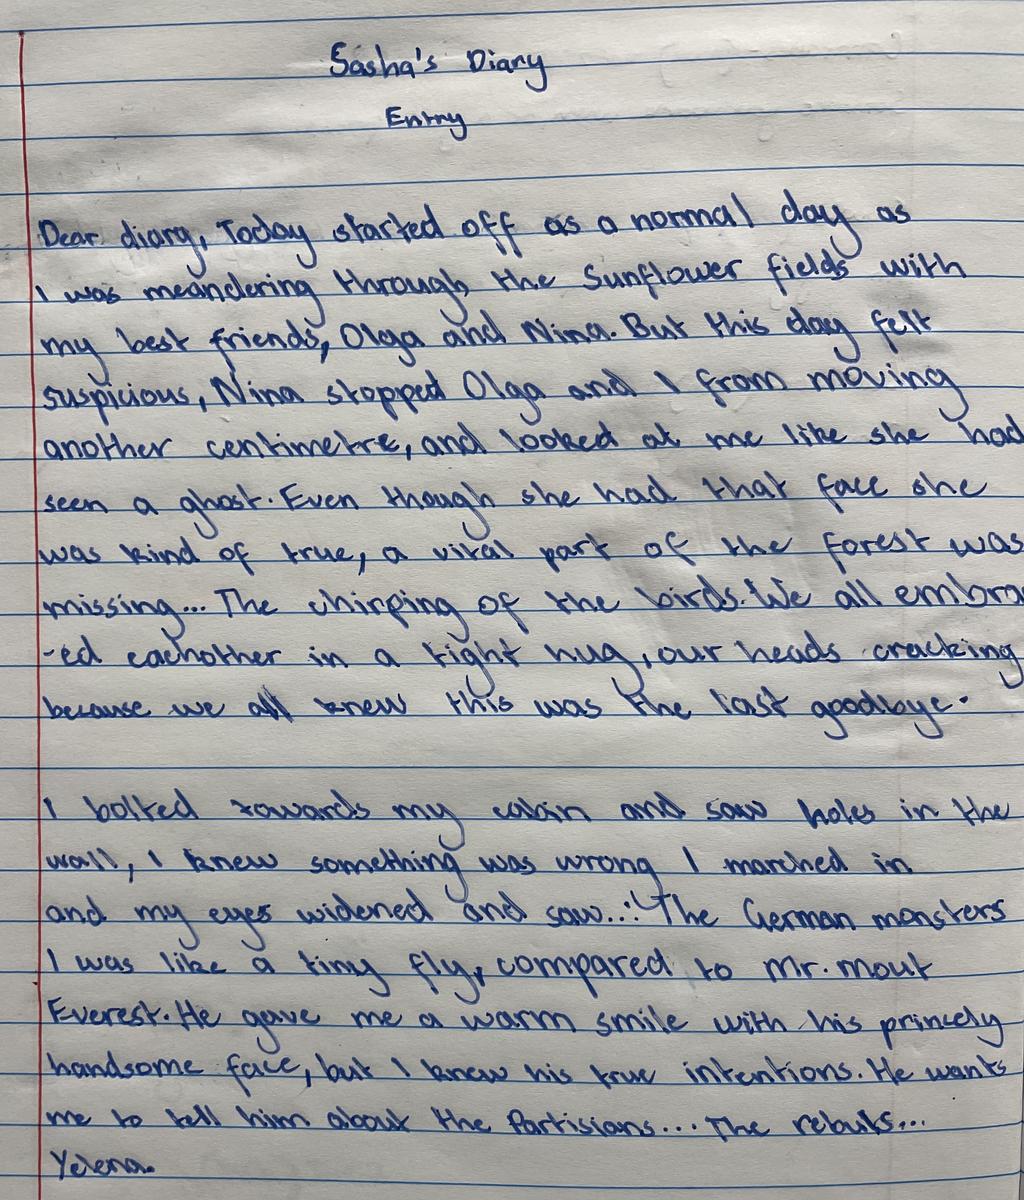 Sasha's Diary
Entry
Dear diary, Today started off as a normal day as
I was meandering through the Sunflower fields with
my best friends, Olga and Nina. But this day felt
suspicious, Nina stopped Olga and I from moving
another centimetre, and looked at me like she had
seen a ghost. Even though she had that face she
was kind of true, a vital part of the forest was
missing... The chirping of the birds. We all embra
-ed eachother in a tight hug, our heads cracking
because we all knew this was the last goodbye.
I bolted towards my cabin and saw holes in the
wall, I knew something was wrong I marched in
and my eyes widened and saw... The German monsters
I was like a tiny fly, compared to Mr. mout
Everest. He gave me a warm smile with his princely
handsome face, but I knew his true intentions. He wants
me to tell him about the Partisians... The rebuls...
Yelena.